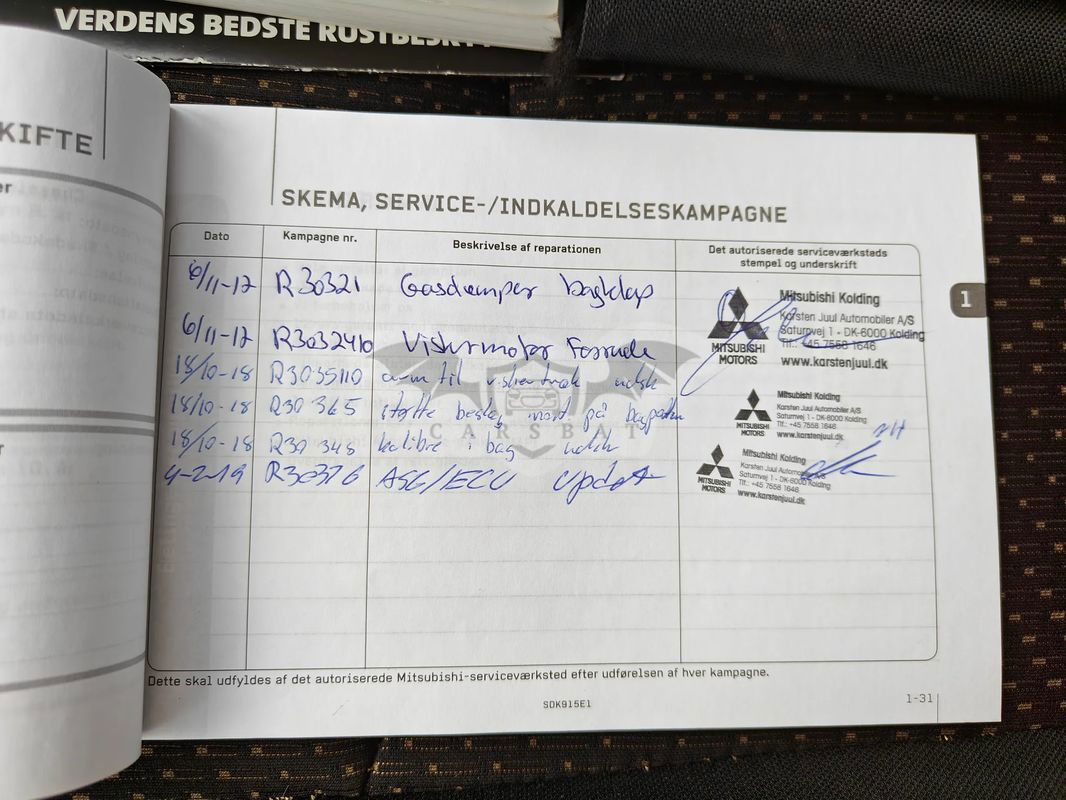 VERDENS BEDSTE RUSTBESKY
KIFTE
er
SKEMA, SERVICE-/INDKALDELSESKAMPAGNE
Dato
Kampagne nr.
Beskrivelse af reparationen
Det autoriserede serviceværksteds
stempel og underskrift
6/11-17 R30321 Gasdæmper bagklap
6/11-17 R3032410 Viskermotor Forrude
18/10-18 R3035110 arm til visker udsk
18/10-18 R30365 støtte beslag på
18/10-18 R30348 i bag udsk
4-2-19 R30376 ASG/ECU Updat
MITSUBISHI
MOTORS
Mitsubishi Kolding
Karsten Juul Automobiler A/S
Saturnvej 1 - DK-6000 Kolding
Tlf.: +45 7558 1646
www.karstenjuul.dk
MITSUBISHI
MOTORS
Mitsubishi Kolding
Karsten Juul Automobiler A/S
Saturnvej 1 - DK-6000 Kolding
Tlf.: +45 7558 1646
www.karstenjuul.dk
MITSUBISHI
MOTORS
Mitsubishi Kolding
Karsten Juul Automobiler A/S
Saturnvej 1 - DK-6000 Kolding
Tlf.: +45 7558 1646
www.karstenjuul.dk
1
CARSBAT
Dette skal udfyldes af det autoriserede Mitsubishi-serviceværksted efter udførelsen af hver kampagne.
SDK915E1
1-31